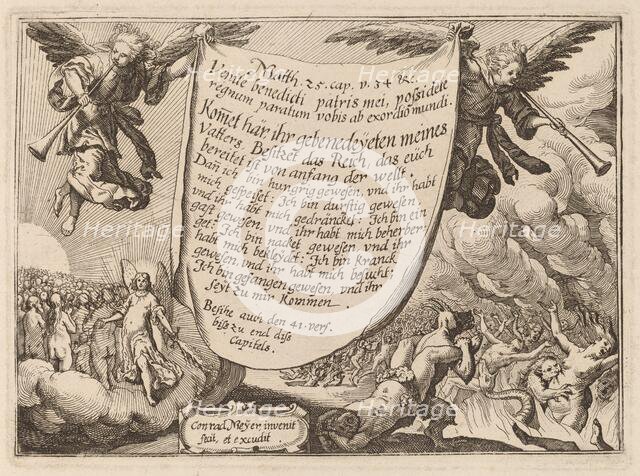 Matth. 25. cap. v. 34 etc.
Venite benedicti patris mei, possidete
regnum paratum vobis ab exordio mundi.
Komet här ihr gebenedeyeten meines
Vatters, Besitzet das Reich, das euch
bereitet ist von anfang der wellt.
Dan ich bin hungrig gewesen, und ihr habt
mich gespeiset: Ich bin durstig gewesen,
und ihr habt mich gedräncket: Ich bin ein
gast gewesen, und ihr habt mich beherber,,
get: Ich bin nacket gewesen und ihr
habt mich bekleydt: Ich bin kranck
gewesen, und ihr habt mich besucht:
Ich bin gefangen gewesen, und ihr
seyt zu mir kommen.
Besihe auch den 41. vers.
biß zu end diß
Capitels.
Conrad Meÿer invenit
fecit, et excudit.
Heritage
Heritage
Heritage
Heritage
Heritage
Heritage